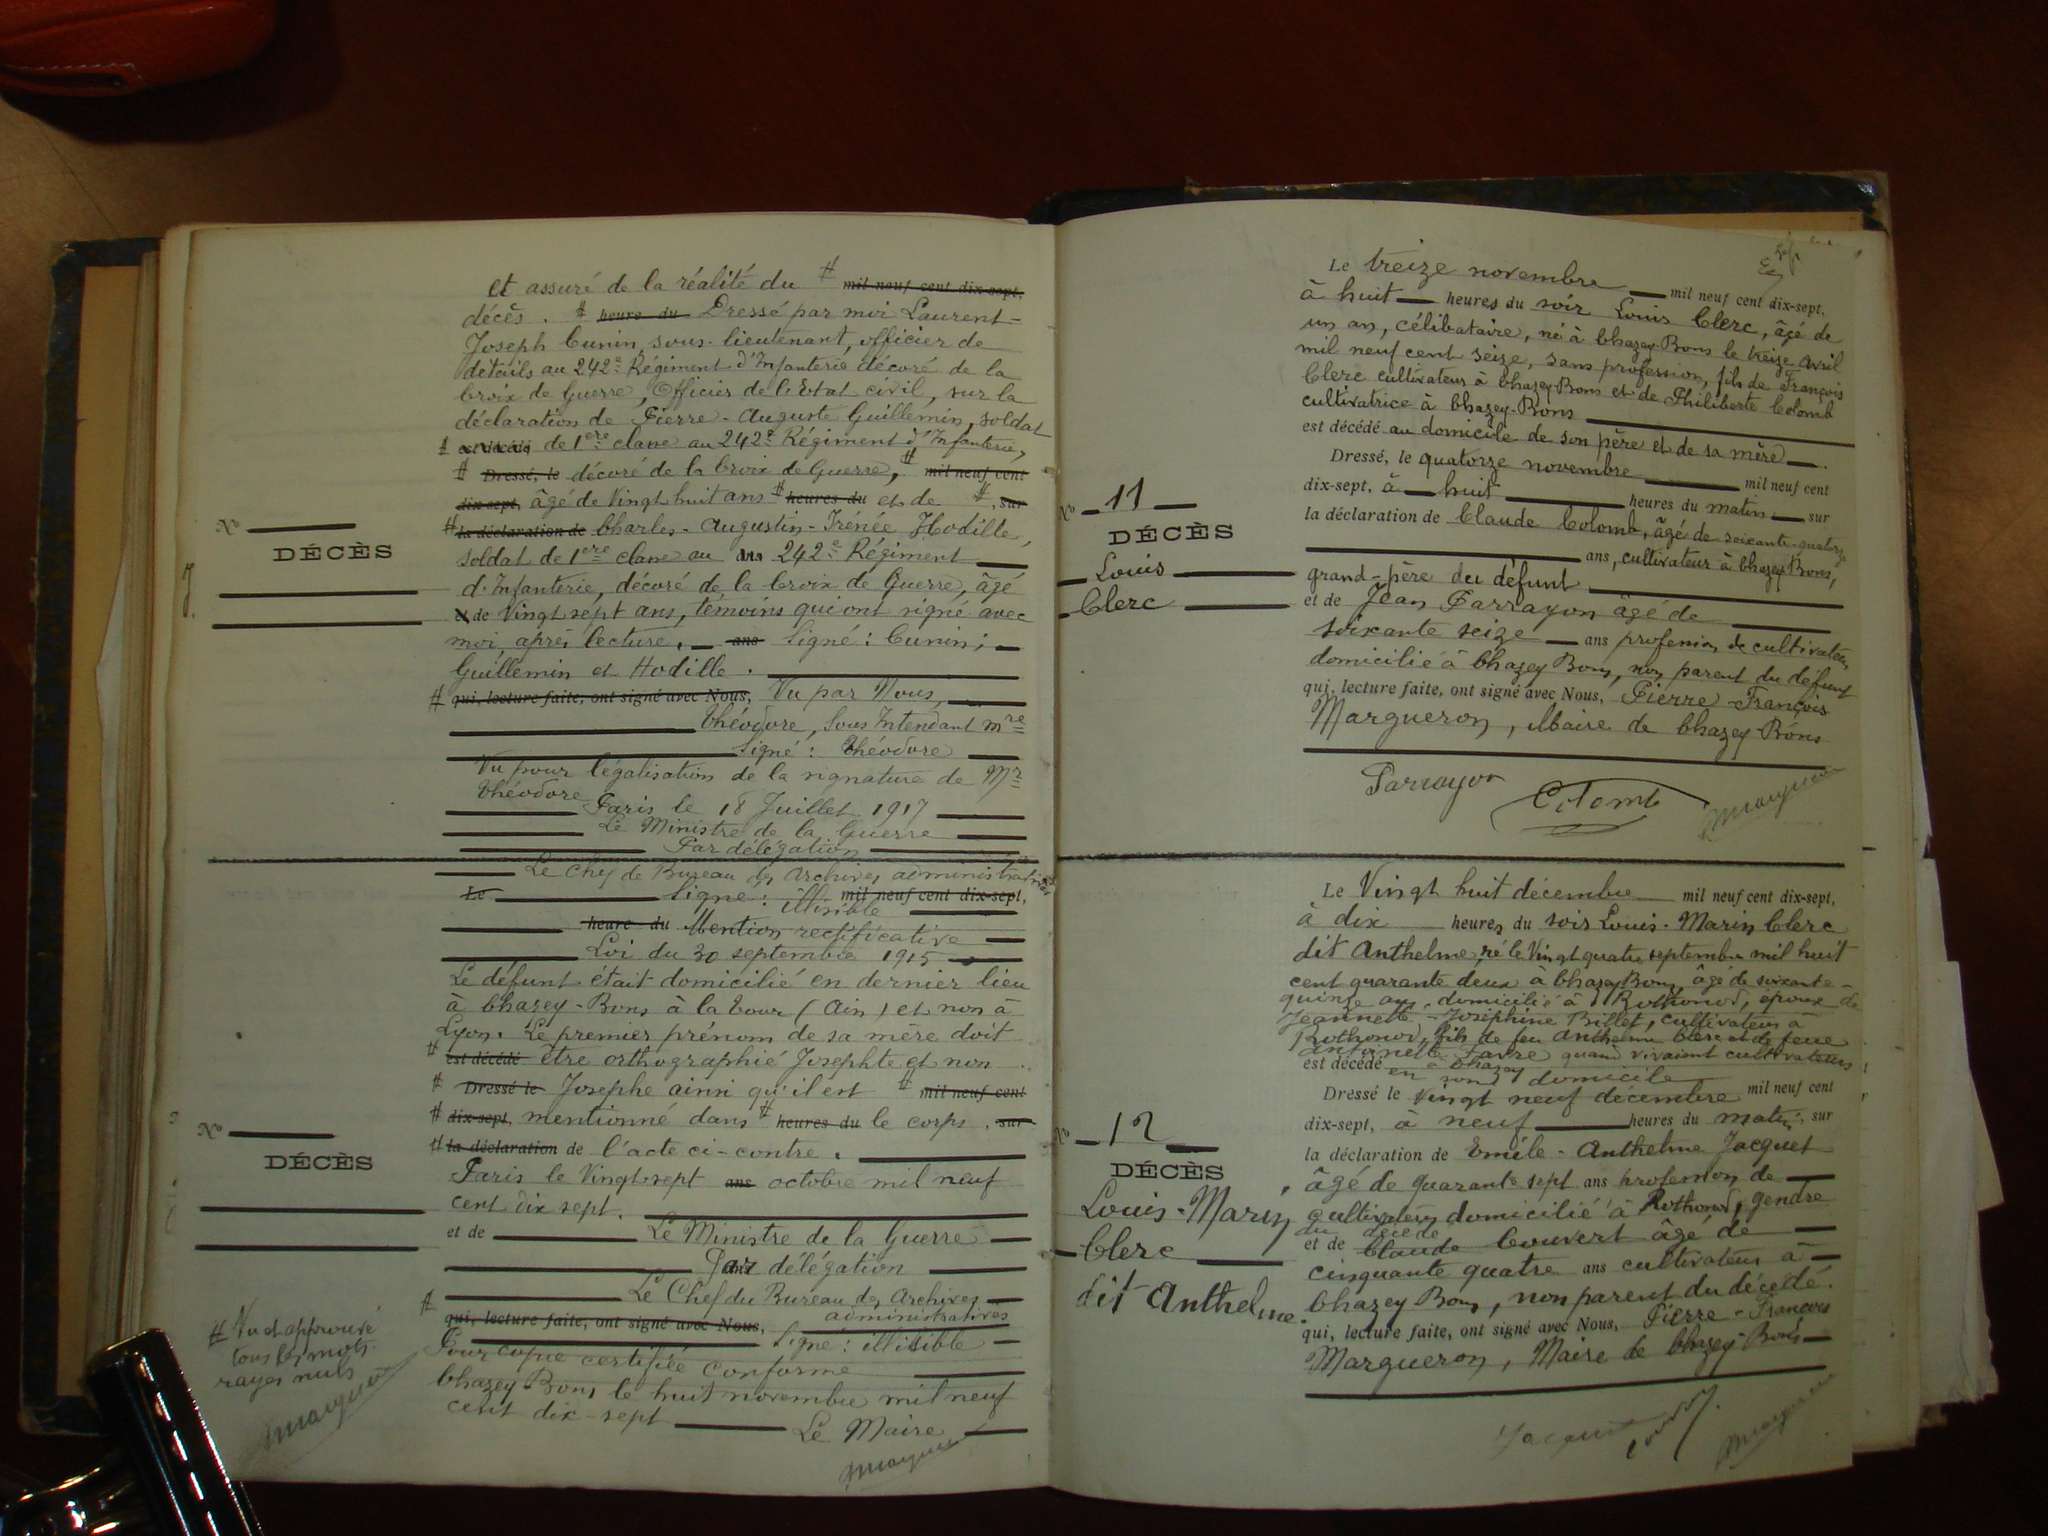 et assuré de la réalité du # mil neuf cent dix-sept,
décès. # heure du Dressé par moi Laurent-
Joseph Cunin, sous-lieutenant, officier de
détails au 242e Régiment d'Infanterie décoré de la
Croix de Guerre, Officier de l'Etat civil, sur la
déclaration de Pierre-Auguste Guillemin, soldat
# est décédé de 1ere classe au 242e Régiment d'Infanterie,
# Dressé, le décoré de la Croix de Guerre, # mil neuf cent
dix-sept, âgé de Vingt huit ans # heures du et de #, sur
# la déclaration de Charles-Augustin-Irénée Hodille,
soldat de 1ere classe au ans 242e Régiment
d'Infanterie, décoré de la Croix de Guerre, âgé
et de Vingt sept ans, témoins qui ont signé avec
moi, après lecture. ans Signé: Cunin;
Guillemin et Hodille.
# qui, lecture faite, ont signé avec Nous, Vu par Nous,
Théodore, Sous Intendant Mre
Signé: Théodore
Vu pour légalisation de la signature de Mr
Théodore
Paris le 18 Juillet 1917
Le Ministre de la Guerre
Par délégation
Le Chef de Bureau des Archives administratives
Le Signé: mil neuf cent dix-sept,
illisible
heure du Mention rectificative
Loi du 30 septembre 1915
Le défunt était domicilié en dernier lieu
à Chazey-Bons à la Cour (Ain) et non à
Lyon. Le premier prénom de sa mère doit
# est décédé être orthographié Josephte et non
# Dressé le Josephe ainsi qu'il est # mil neuf cent
# dix-sept, mentionné dans # heures du le corps, sur
# la déclaration de l'acte ci-contre.
Paris le Vingt-sept ans octobre mil neuf
cent dix sept.
et de Le Ministre de la Guerre
Par délégation
Le Chef du Bureau des Archives
administratives
# qui, lecture faite, ont signé avec Nous,
Signé: illisible
Pour copie certifiée conforme
Chazey-Bons le huit novembre mil neuf
cent dix-sept
Le Maire
No
DÉCÈS
No
DÉCÈS
# Vu et approuvé
tous les mots
rayés nuls
No 11
DÉCÈS
Louis
Clerc
Le treize novembre mil neuf cent dix-sept,
à huit heures du soir Louis Clerc, âgé de
un an, célibataire, né à Chazey-Bons le treize avril
mil neuf cent seize, sans profession, fils de François
Clerc cultivateur à Chazey-Bons et de Philiberte Colomb
cultivatrice à Chazey-Bons
est décédé au domicile de son père et de sa mère.
Dressé, le quatorze novembre mil neuf cent
dix-sept, à huit heures du matin sur
la déclaration de Claude Colomb, âgé de soixante-quatorze
ans, cultivateur à Chazey Bons,
grand-père du défunt
et de Jean Parrayon âgé de
soixante seize ans profession de cultivateur
domicilié à Chazey Bons, non parent du défunt
qui, lecture faite, ont signé avec Nous, Pierre-François
Margueron, Maire de Chazey-Bons
Parrayon Colomb Margueron
No 12
DÉCÈS
Louis-Marin
Clerc
dit Anthelme.
Le Vingt huit décembre mil neuf cent dix-sept,
à dix heures du soir Louis-Marin Clerc
dit Anthelme, né le Vingt quatre septembre mil huit
cent quarante deux à Chazey Bons, âgé de soixante-
quinze ans, domicilié à Rothonod, époux de
Jeannette-Joséphine Billet, cultivateur à
Rothonod, fils de feu Anthelme Clerc et de feue
Antoinette Favre quand vivaient cultivateurs
est décédé à Chazey
en son domicile
Dressé le Vingt neuf décembre mil neuf cent
dix-sept, à neuf heures du matin, sur
la déclaration de Emile-Anthelme Jacquet
âgé de quarante sept ans profession de
cultivateur domicilié à Rothonod, gendre
du décédé
et de Claude Couvert âgé de
cinquante quatre ans cultivateur à
Chazey Bons, non parent du décédé.
qui, lecture faite, ont signé avec Nous, Pierre-François
Margueron, Maire de Chazey-Bons
Jacquet